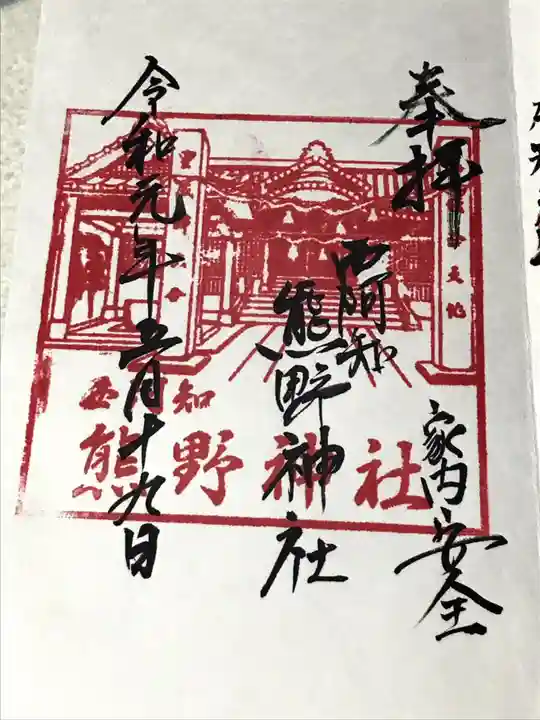 奉拝
家内安全
西阿知
熊野神社
令和元年五月十九日
西阿知
熊野神社